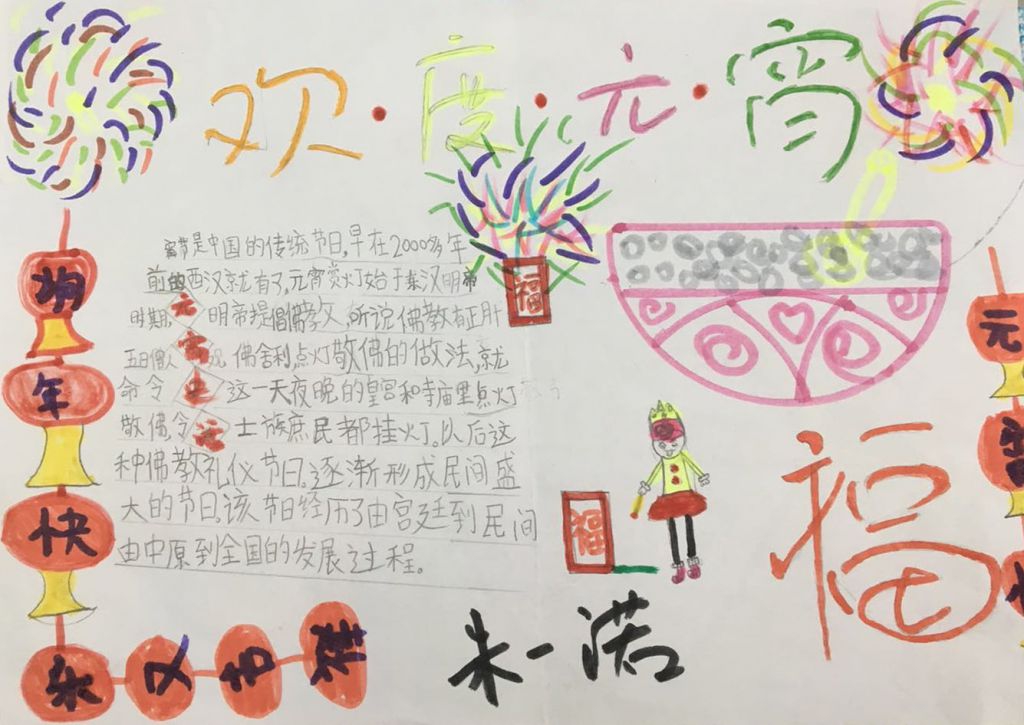 欢·度·元·宵
宵节是中国的传统节日,早在2000多年
前的西汉就有了,元宵赏灯始于东汉明帝
时期,明帝提倡佛教,所说佛教有正月
五日僧人 佛舍利,点灯敬佛的做法,就
命令 这一天夜晚的皇宫和寺庙里点灯
敬佛令 士族庶民都挂灯。以后这
种佛教礼仪节日,逐渐形成民间盛
大的节日,该节日经历了由宫廷到民间
由中原到全国的发展过程。
元
宵
福
福
福
年
快
乐
元
宵
朱一诺